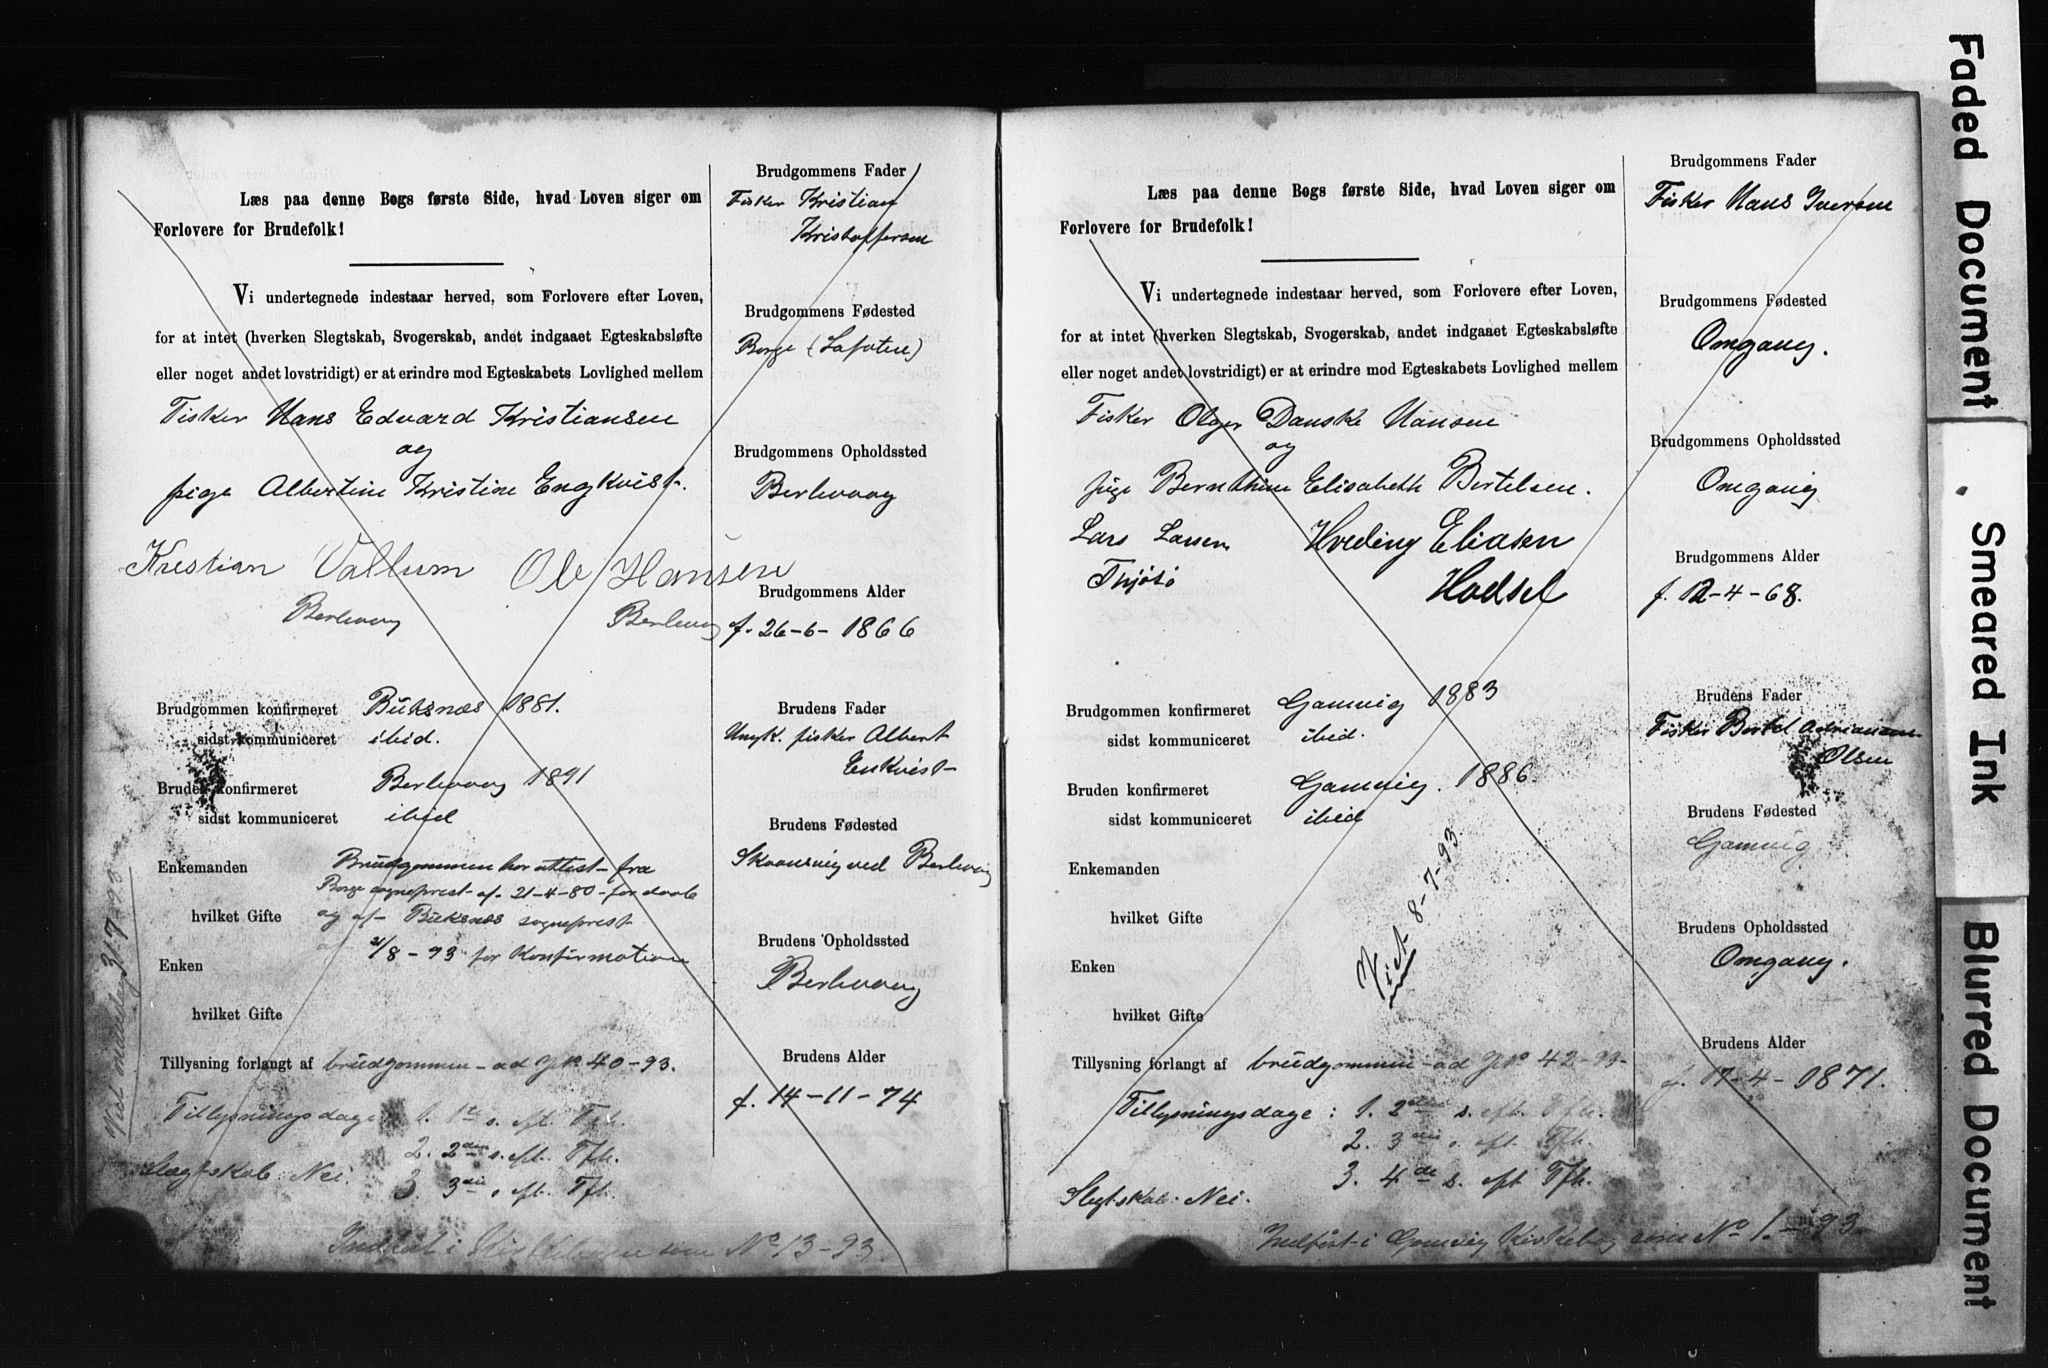 Læs paa denne Bogs første Side, hvad Loven siger om
Forlovere for Brudefolk!
Vi undertegnede indestaar herved, som Forlovere efter Loven,
for at intet (hverken Slegtskab, Svogerskab, andet indgaaet Egteskabsløfte
eller noget andet lovstridigt) er at erindre mod Egteskabets Lovlighed mellem
Fisker Hans Edvard Kristiansen
og
pige Albertine Kristine Engkvist.
Kristian Vallum Ole Hansen
Berlevaag Berlevaag
Brudgommen konfirmeret Buksnæs 1881.
sidst kommuniceret ibid.
Bruden konfirmeret Berlevaag 1891
sidst kommuniceret ibid
Enkemanden Brudgommen har attest fra
Borge sogneprest af 21-4-80 for daab
hvilket Gifte og af Buksnæs sogneprest
21/8-93 for Konfirmation
Enken
hvilket Gifte
Tillysning forlangt af brudgommen - ad No 40-93.
Tillysningsdage 1. 1te s. eft. Tfh.
2. 2den s. eft. Tfh.
Slægtskab: Nei.
3. 3die s. eft. Tfh.
Indført i Kirkebogen som No 13-93.
Viet mandag 31-7-93
Brudgommens Fader
Fisker Kristian
Kristoffersen
Brudgommens Fødested
Borge (Lofoten)
Brudgommens Opholdssted
Berlevaag
Brudgommens Alder
f. 26-6-1866
Brudens Fader
Ungk. fisker Albert
Enkvist
Brudens Fødested
Skonsvig ved Berlevaag
Brudens Opholdssted
Berlevaag
Brudens Alder
f. 14-11-74
Læs paa denne Bogs første Side, hvad Loven siger om
Forlovere for Brudefolk!
Vi undertegnede indestaar herved, som Forlovere efter Loven,
for at intet (hverken Slegtskab, Svogerskab, andet indgaaet Egteskabsløfte
eller noget andet lovstridigt) er at erindre mod Egteskabets Lovlighed mellem
Fisker Olger Danske Hansen
og
pige Bernthine Elisabeth Bertelsen.
Lars Larsen Hveding Eliasen
Thjøtø Hadsel
Brudgommen konfirmeret Gamvig 1883
sidst kommuniceret ibid.
Bruden konfirmeret Gamvig. 1886.
sidst kommuniceret ibid
Enkemanden
hvilket Gifte
Viet 8-7-93.
Enken
hvilket Gifte
Tillysning forlangt af brudgommen - ad No 42-93-
Tillysningsdage: 1. 2den s. eft. Tfh.
2. 3die s. eft. Tfh.
3. 4de s. eft Tfh.
Slegtskab: Nei.
Indført i Gamvig Kirkebog som No 1.-93.
Brudgommens Fader
Fisker Hans Iversen
Brudgommens Fødested
Omgang.
Brudgommens Opholdssted
Omgang
Brudgommens Alder
f. 12-4-68.
Brudens Fader
Fisker Bertel Adriansen
Olsen
Brudens Fødested
Gamvig
Brudens Opholdssted
Omgang.
Brudens Alder
f. 17-4-1871.
Faded Document
Smeared Ink
Blurred Document